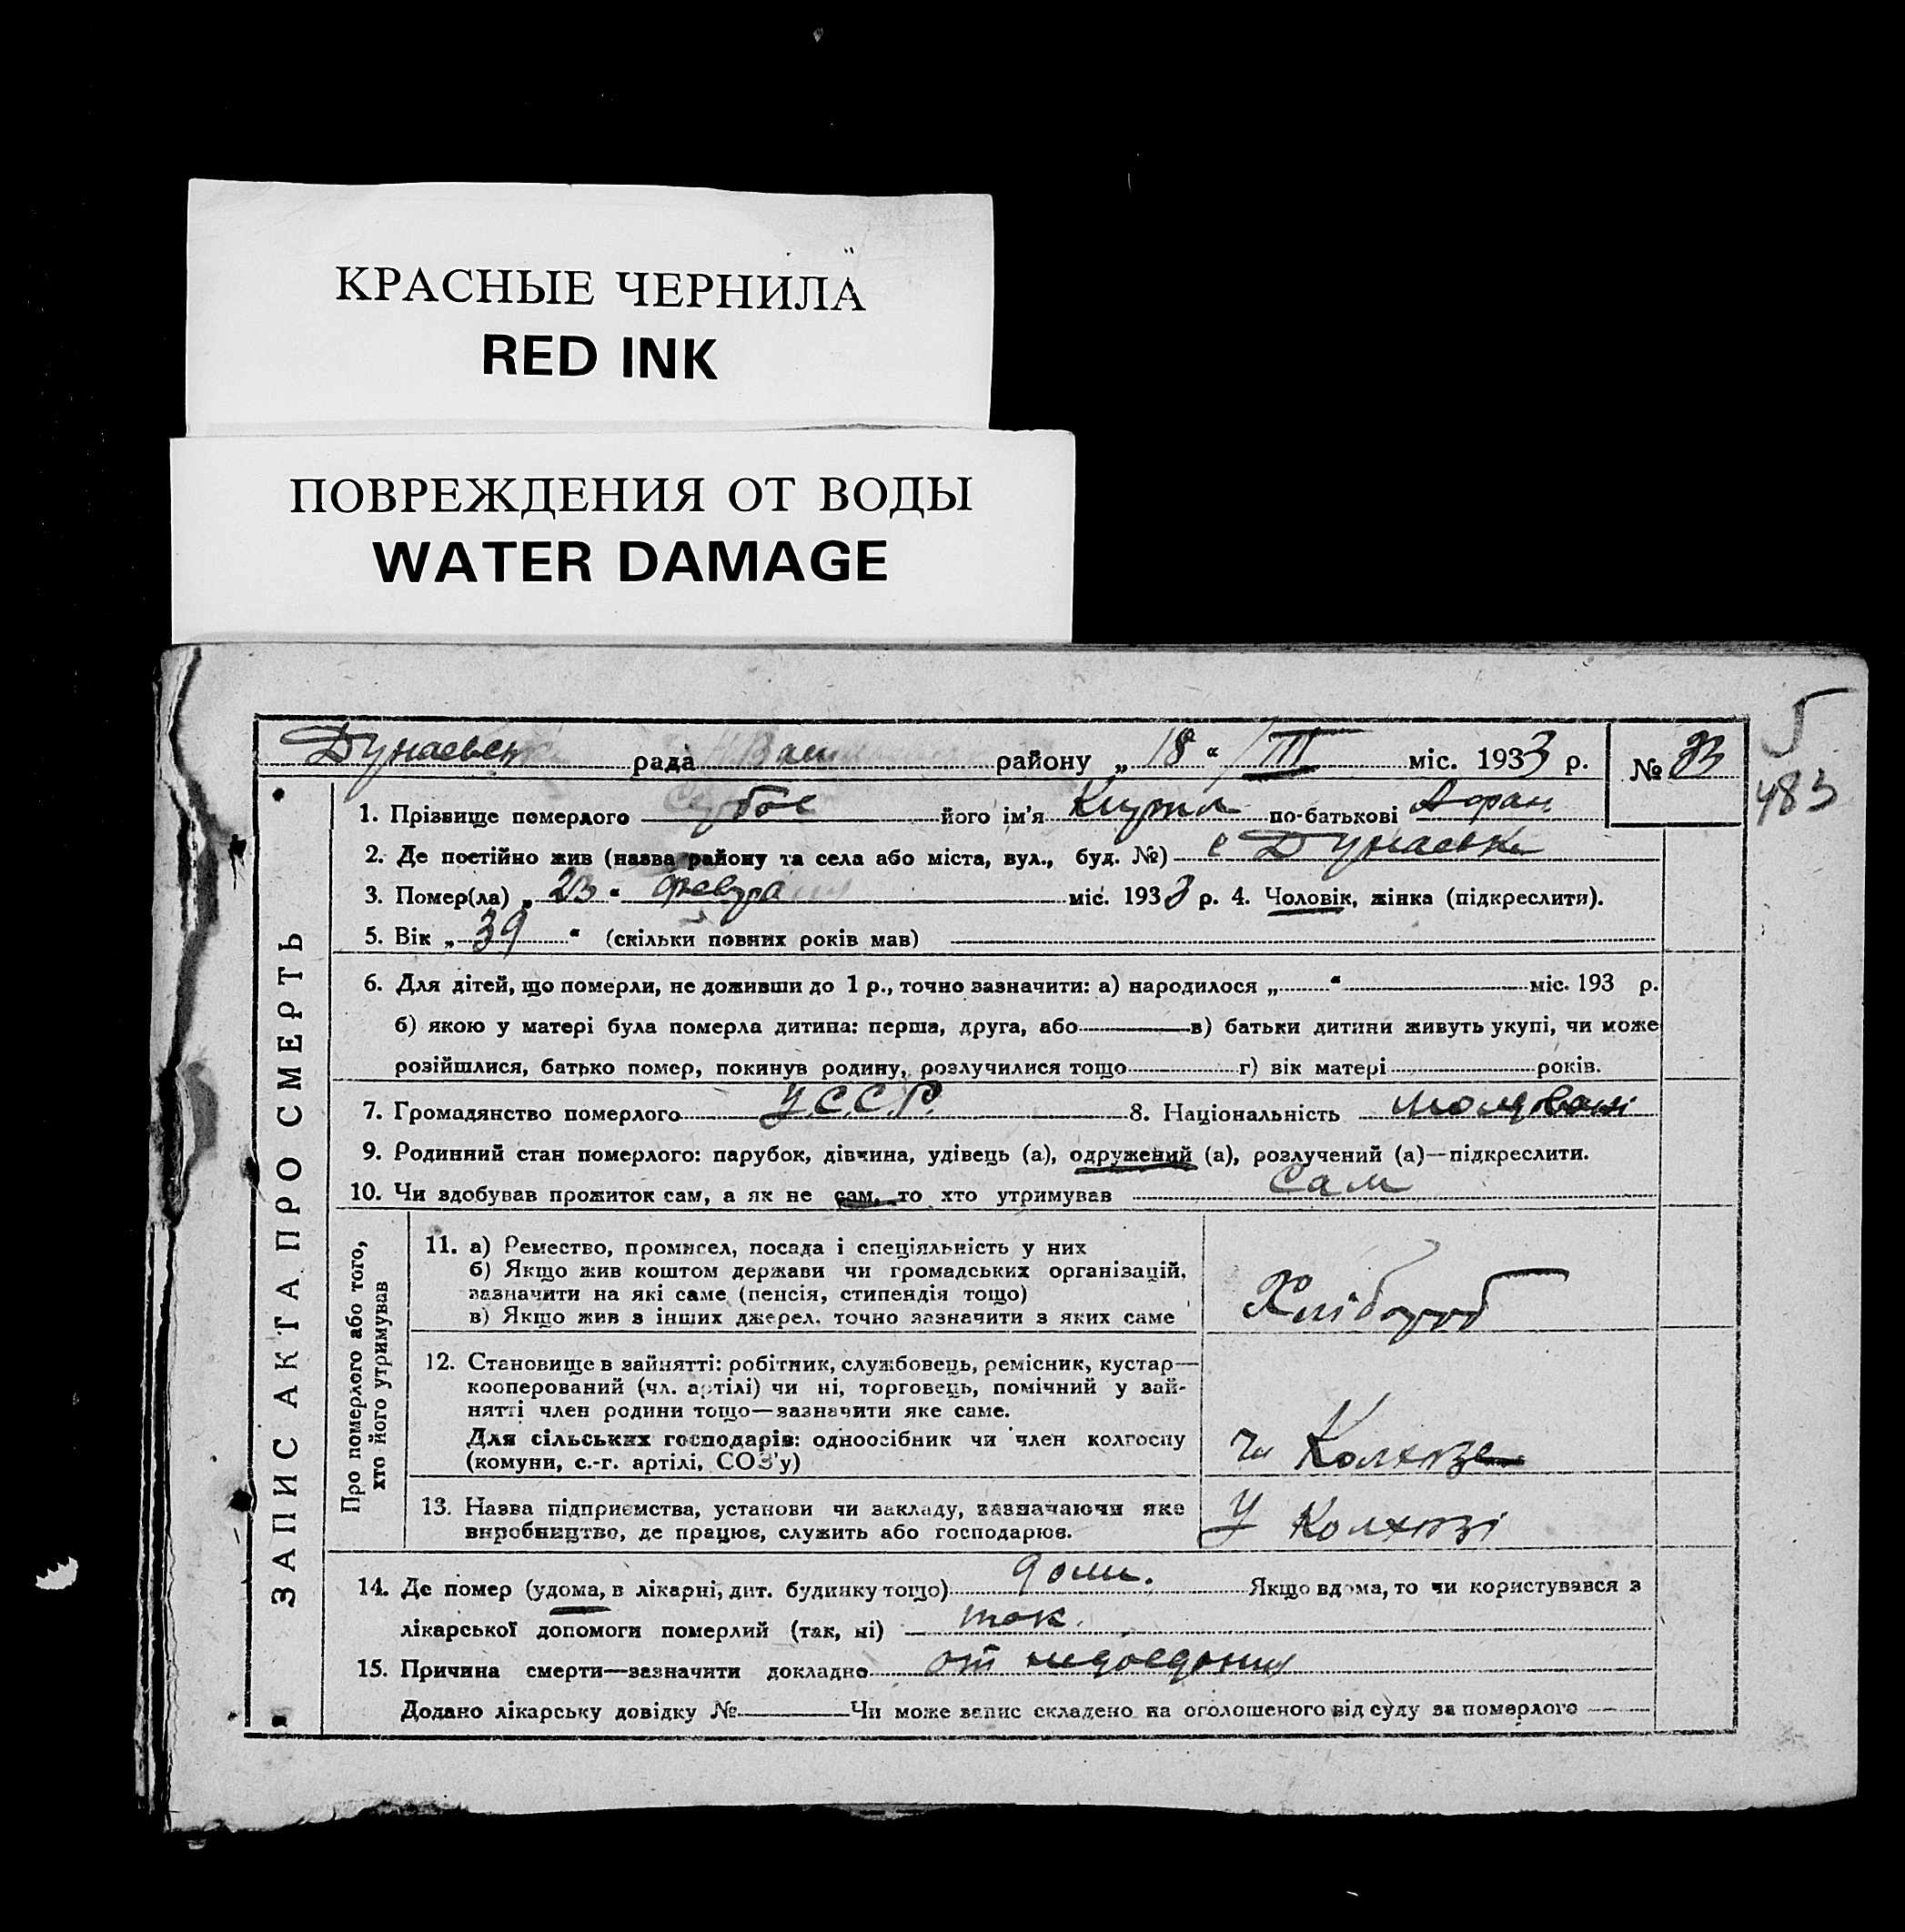 КРАСНЫЕ ЧЕРНИЛА
RED INK
ПОВРЕЖДЕНИЯ ОТ ВОДЫ
WATER DAMAGE
5
483
Дунаевск рада району „18“ III міс. 1933 р. № 33
ЗАПИС АКТА ПРО СМЕРТЬ
1. Прізвище померлого його ім'я Кирил по-батькові Афран
2. Де постійно жив (назва району та села або міста, вул., буд. №) с Дунаевке
3. Помер(ла) „ “ февра міс. 1933 р. 4. Чоловік, жінка (підкреслити).
5. Вік „39“ (скільки повних років мав)
6. Для дітей, що померли, не доживши до 1 р., точно зазначити: а) народилося „ “ міс. 193 р.
б) якою у матері була померла дитина: перша, друга, або в) батьки дитини живуть укупі, чи може
розійшлися, батько помер, покинув родину, розлучилися тощо г) вік матері років.
7. Громадянство померлого У.С.С.Р. 8. Національність молдован
9. Родинний стан померлого: парубок, дівчина, удівець (а), одружений (а), розлучений (а)—підкреслити.
10. Чи здобував прожиток сам, а як не сам, то хто утримував сам
Про померлого або того,
хто його утримував
11. а) Ремество, промисел, посада і спеціяльність у них
б) Якщо жив коштом держави чи громадських організацій,
зазначити на які саме (пенсія, стипендія тощо)
в) Якщо жив з інших джерел, точно зазначити з яких саме
Хлібороб
12. Становище в зайнятті: робітник, службовець, ремісник, кустар—
кооперований (чл. артілі) чи ні, торговець, помічний у зай-
нятті член родини тощо—зазначити яке саме.
Для сільських господарів: одноосібник чи член колгоспу
(комуни, с.-г. артілі, СОЗ'у)
чл Колхозе
13. Назва підприємства, установи чи закладу, зазначаючи яке
виробництво, де працює, служить або господарює.
У Колхозі
14. Де помер (удома, в лікарні, дит. будинку тощо) доми. Якщо вдома, то чи користувався з
лікарської допомоги померлий (так, ні) так.
15. Причина смерти—зазначити докладно от недоедания
Додано лікарську довідку № Чи може запис складено на оголошеного від суду за померлого